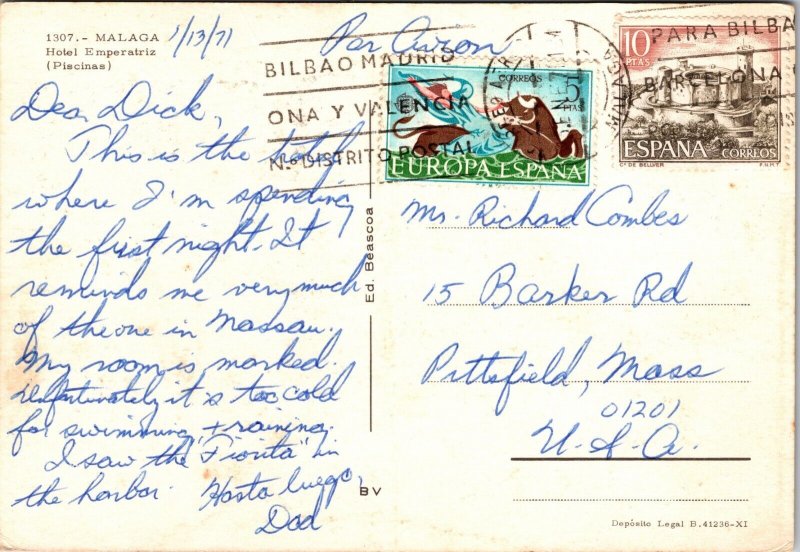 1307.- MALAGA
Hotel Emperatriz
(Piscinas)
1/13/71
Par Avion
BILBAO MADRID
ONA Y VALENCIA
N.º DISTRITO POSTAL
CORREOS
5 PTAS
EUROPA ESPAÑA
10 PTAS
PARA BILBA
BARCELONA
MALAGA
ESPAÑA
CORREOS
Cº DE BELLVER
F.N.M.T.
Dear Dick,
This is the hotel
where I'm spending
the first night. It
reminds me very much
of the one in Nassau.
My room is marked.
Unfortunately it is too cold
for swimming, + raining.
I saw the "Fiorita" in
the harbor. Hasta luego,
Dad
Ed. Beascoa
BV
Mr. Richard Combes
15 Barker Rd
Pittsfield, Mass
01201
U.S.A.
Depósito Legal B. 41236-XI